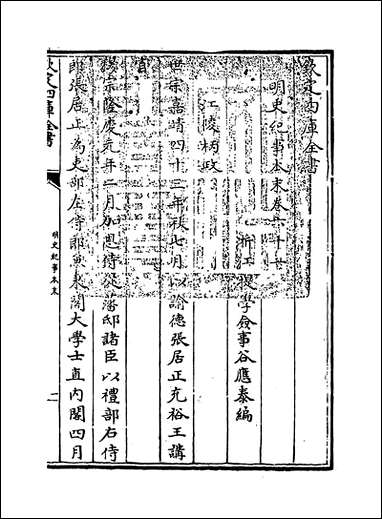 欽定四庫全書
明史紀事本末卷六十一
浙江提學僉事谷應泰編
江陵柄政
世宗嘉靖四十三年秋七月以諭德張居正充裕王講
官
穆宗隆慶元年二月加恩侍從藩邸諸臣以禮部右侍
郎張居正為吏部左侍郎兼東閣大學士直內閣四月
欽定四庫全書
明史紀事本末